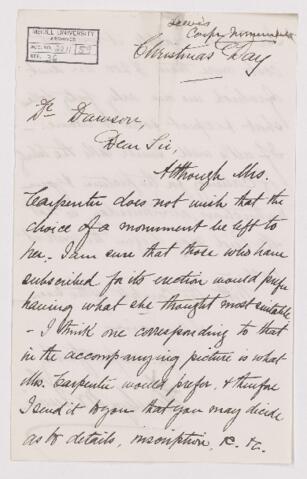 Lewis
Carp. Monument
McGILL UNIVERSITY
ARCHIVES
ACC. NO. 2211 / 59
REF. 36
Christmas Day
Dr Dawson,
Dear Sir,
Although Mrs.
Carpenter does not wish that the
choice of a monument be left to
her. I am sure that those who have
subscribed for its erection would prefer
having what she thought most suitable
- I think one corresponding to that
in the accompanying picture is what
Mrs. Carpenter would prefer, & therefore
I send it to you that you may decide
as to details, inscription, &c. &c.